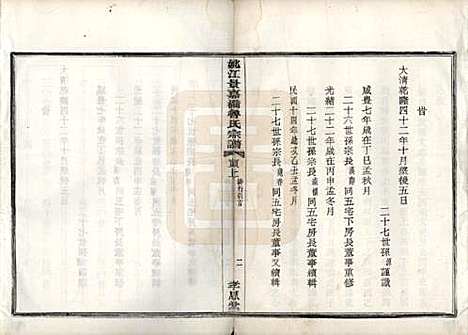 旹
大清乾隆四十二年十月穀後五日
二十七世孫 謹識
咸豐七年歲在丁巳孟秋月
二十六世孫宗長 同五宅下房長董事重修
光緒二十二年歲在丙申孟冬月
二十七世孫宗長 同五宅房長董事續輯
民國十四年 乙丑孟冬月
二十七世孫宗長 同五宅房長董事又續輯
姚江景嘉橋魯氏宗譜
首上
二
孝思堂